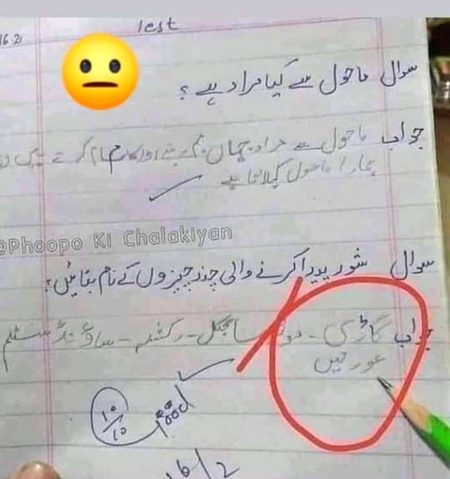 16.2
Test
سوال ماحول سے کیا مراد ہے؟
جواب ماحول سے مراد جہاں ہم رہتے اور کام کرتے ہیں
ہمارا ماحول کہلاتا ہے
@Phoopo Ki Chalakiyan
سوال شور پیدا کرنے والی چند چیزوں کے نام بتائیں؟
جواب گاڑی - موٹر سائیکل - رکشہ - ساؤنڈ سسٹم
عورتیں
10/10 good
16/2